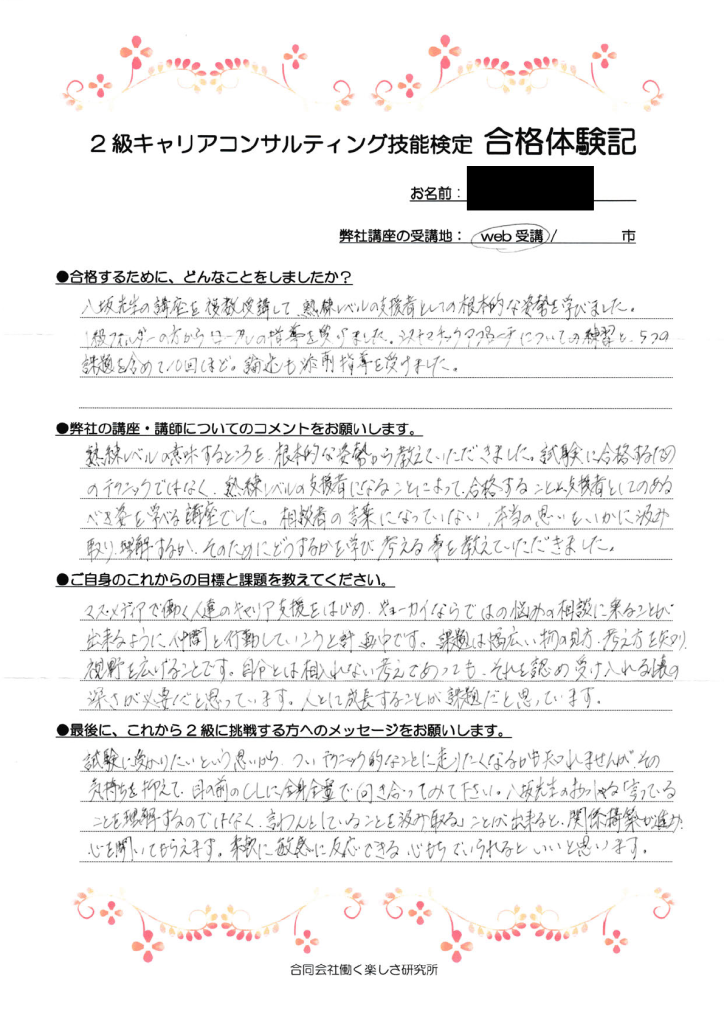 2級キャリアコンサルティング技能検定 合格体験記
お名前：
弊社講座の受講地： web受講 / 市
●合格するために、どんなことをしましたか？
八坂先生の講座を複数受講して、熟練レベルの支援者としての根本的な姿勢を学びました。
1級フォルダーの方からロープレの指導を受けました。システマチックアプローチについての練習と、5つの
課題を含めて10回ほど。論述も添削指導を受けました。
●弊社の講座・講師についてのコメントをお願いします。
熟練レベルの意味するところを、根本的な姿勢から教えていただきました。試験に合格するため
のテクニックではなく、熟練レベルの支援者になることによって、合格すること、支援者としてのある
べき姿を学べる講座でした。相談者の言葉になっていない、本当の思いをいかに汲み
取り、理解するか、そのためにどうするかを学び考える事を教えていただきました。
●ご自身のこれからの目標と課題を教えてください。
マス・メディアで働く人達のキャリア支援をはじめ、ギョーカイならではの悩みの相談に乗ることが
出来るように、仲間と行動していこうと計画中です。課題は幅広い物の見方、考え方を知り、
視野を広げることです。自分とは相入れない考えであっても、それを認め受け入れる懐の
深さが必要だと思っています。人として成長することが課題だと思っています。
●最後に、これから2級に挑戦する方へのメッセージをお願いします。
試験に受かりたいという思いから、ついテクニック的なことに走りたくなるかも知れませんがその
気持ちを抑えて、目の前のCLに全身全霊で向き合ってみて下さい。八坂先生のおっしゃる「言っている
ことを理解するのではなく、言わんとしていることを汲み取る」ことが出来ると、関係構築が進み、
心を開いてもらえます。素敵に敏感に反応できる心もちでいられるといいと思います。
合同会社働く楽しさ研究所